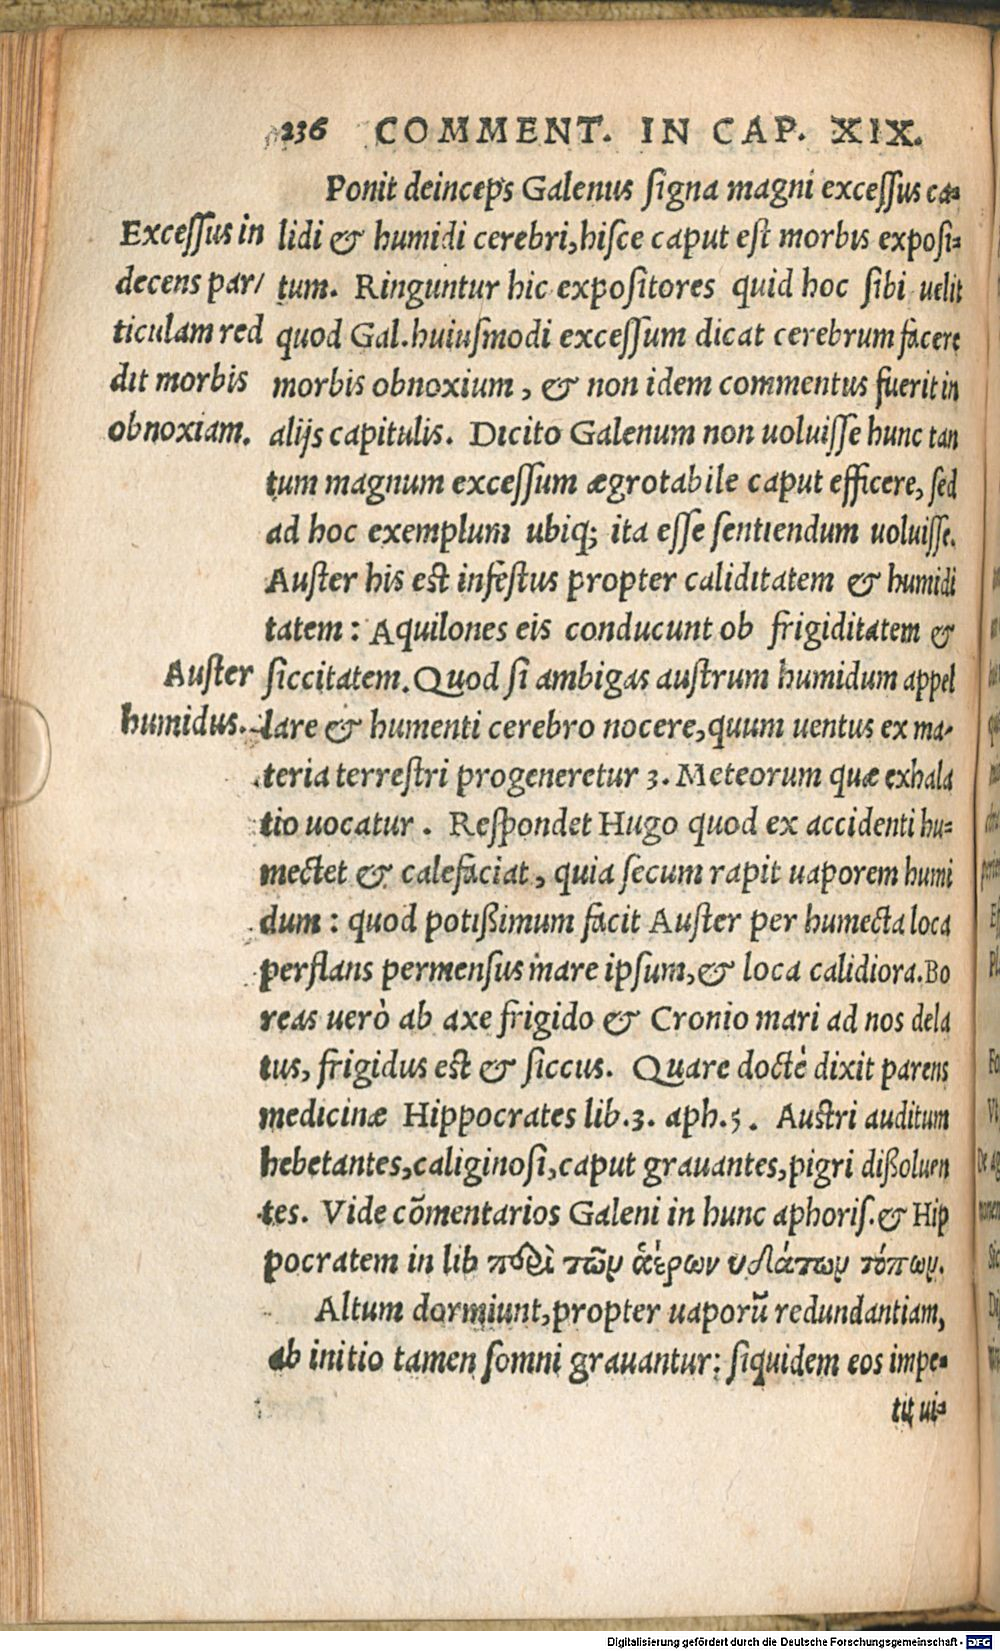 236 COMMENT. IN CAP. XIX.
Ponit deinceps Galenus signa magni excessus ca-
lidi & humidi cerebri, hisce caput est morbis exposi-
tum. Ringuntur hic expositores quid hoc sibi uelit
quod Gal. huiusmodi excessum dicat cerebrum facere
morbis obnoxium, & non idem commentus fuerit in
alijs capitulis. Dicito Galenum non uoluisse hunc tan
tum magnum excessum ægrotabile caput efficere, sed
ad hoc exemplum ubiq; ita esse sentiendum uoluisse.
Auster his est infestus propter caliditatem & humidi
tatem: Aquilones eis conducunt ob frigiditatem &
siccitatem. Quod si ambigas austrum humidum appel
lare & humenti cerebro nocere, quum uentus ex ma-
teria terrestri progeneretur 3. Meteorum quæ exhala
tio uocatur. Respondet Hugo quod ex accidenti hu-
mectet & calefaciat, quia secum rapit uaporem humi
dum: quod potißimum facit Auster per humecta loca
perflans permensus mare ipsum, & loca calidiora. Bo
reas uerò ab axe frigido & Cronio mari ad nos dela
tus, frigidus est & siccus. Quare doctè dixit parens
medicinæ Hippocrates lib. 3. aph. 5. Austri auditum
hebetantes, caliginosi, caput grauantes, pigri dißoluen
tes. Vide cõmentarios Galeni in hunc aphoris. & Hip
pocratem in lib περὶ τῶν ἀέρων ὑδάτων τόπων.
Altum dormiunt, propter uaporũ redundantiam,
ab initio tamen somni grauantur: siquidem eos impe-
tit ui-
Excessus in
decens par/
ticulam red
dit morbis
obnoxiam.
Auster
humidus.
Digitalisierung gefördert durch die Deutsche Forschungsgemeinschaft - DFG